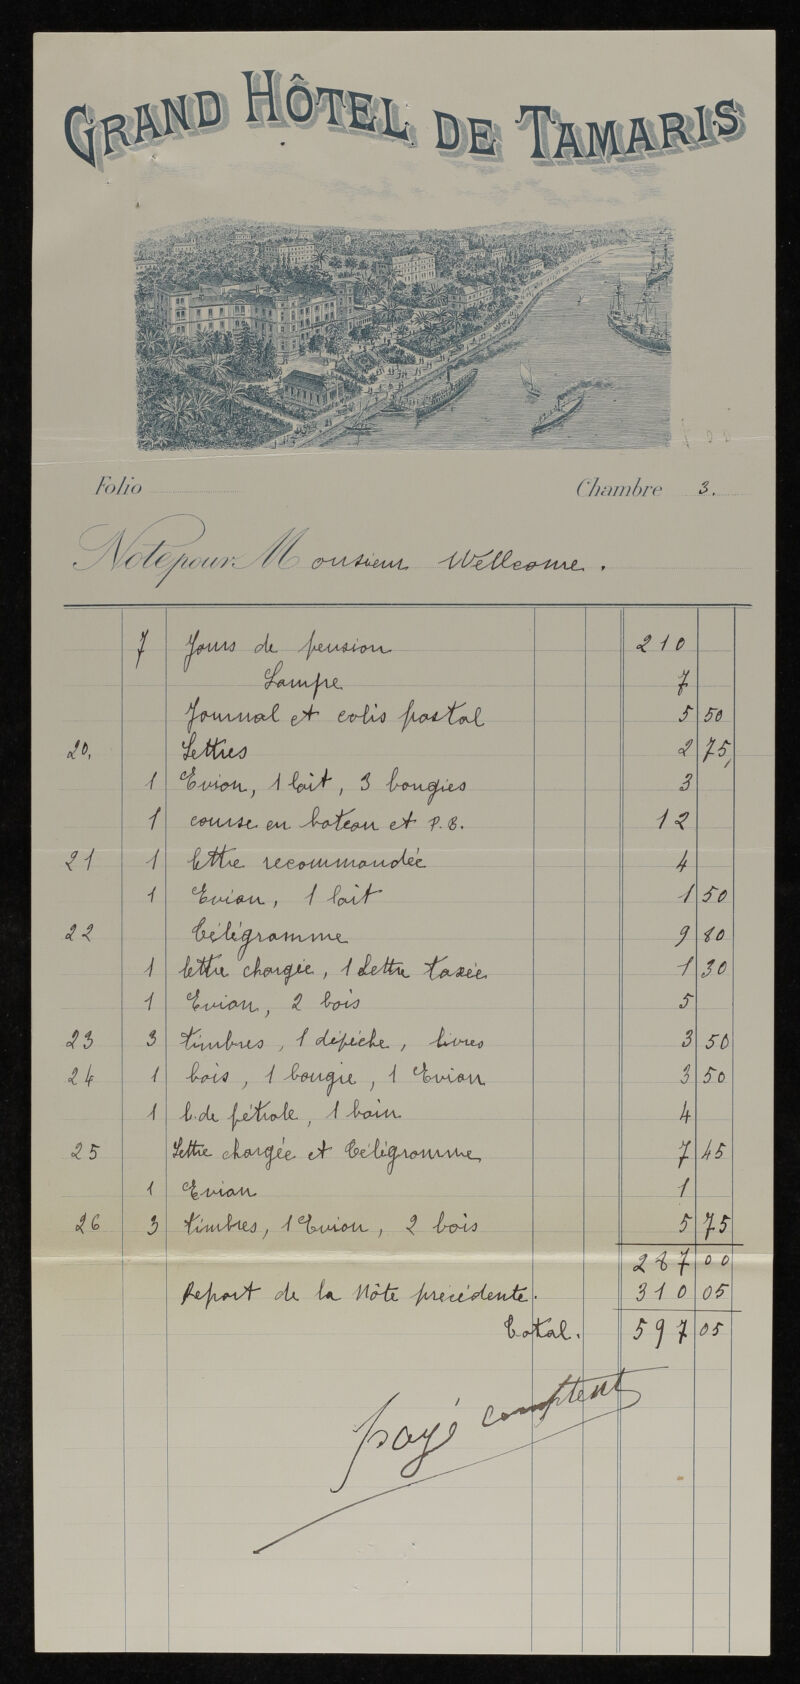 GRAND HÔTEL DE TAMARIS
Folio Chambre 3.
Note pour Monsieur Wellcome.
7 Jours de pension 210
Lampe 7
Journal et colis postal 5 50
20, Lettres 2 75,
1 Evian, 1 lait, 3 bougies 3
1 course en bateau et P.B. 12
21 1 lettre recommandée 4
1 Evian, 1 lait 1 50
22 Télégramme 9 80
1 lettre chargée, 1 Lettre taxée 1 30
1 Evian, 2 bois 5
23 3 timbres, 1 dépêche, livres 3 50
24 1 bois, 1 bougie, 1 Evian 3 50
1 b. de pétrole, 1 bain 4
25 Lettre chargée et Télégramme 7 45
1 Evian 1
26 3 timbres, 1 Evian, 2 bois 5 75
287 00
Report de la Nôte précédente. 310 05
Total. 597 05
payé comptent